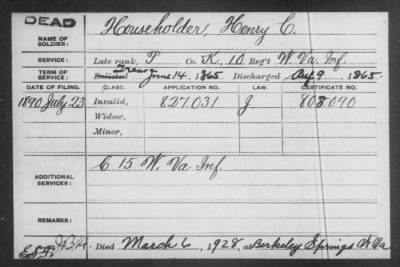 DEAD
NAME OF SOLDIER: Householder, Henry C.
SERVICE: Late rank, P Co. K, 10 Reg't W. Va. Inf.
TERM OF SERVICE: Enlisted Transf June 14, 1865 Discharged Aug 9, 1865.
DATE OF FILING. CLASS. APPLICATION NO. LAW. CERTIFICATE NO.
1890 July 23 Invalid, 827.031 J 808.090
Widow,
Minor,
ADDITIONAL SERVICES: C 15 W. Va Inf.
REMARKS:
Died March 6, 1928, at Berkeley Springs W.Va